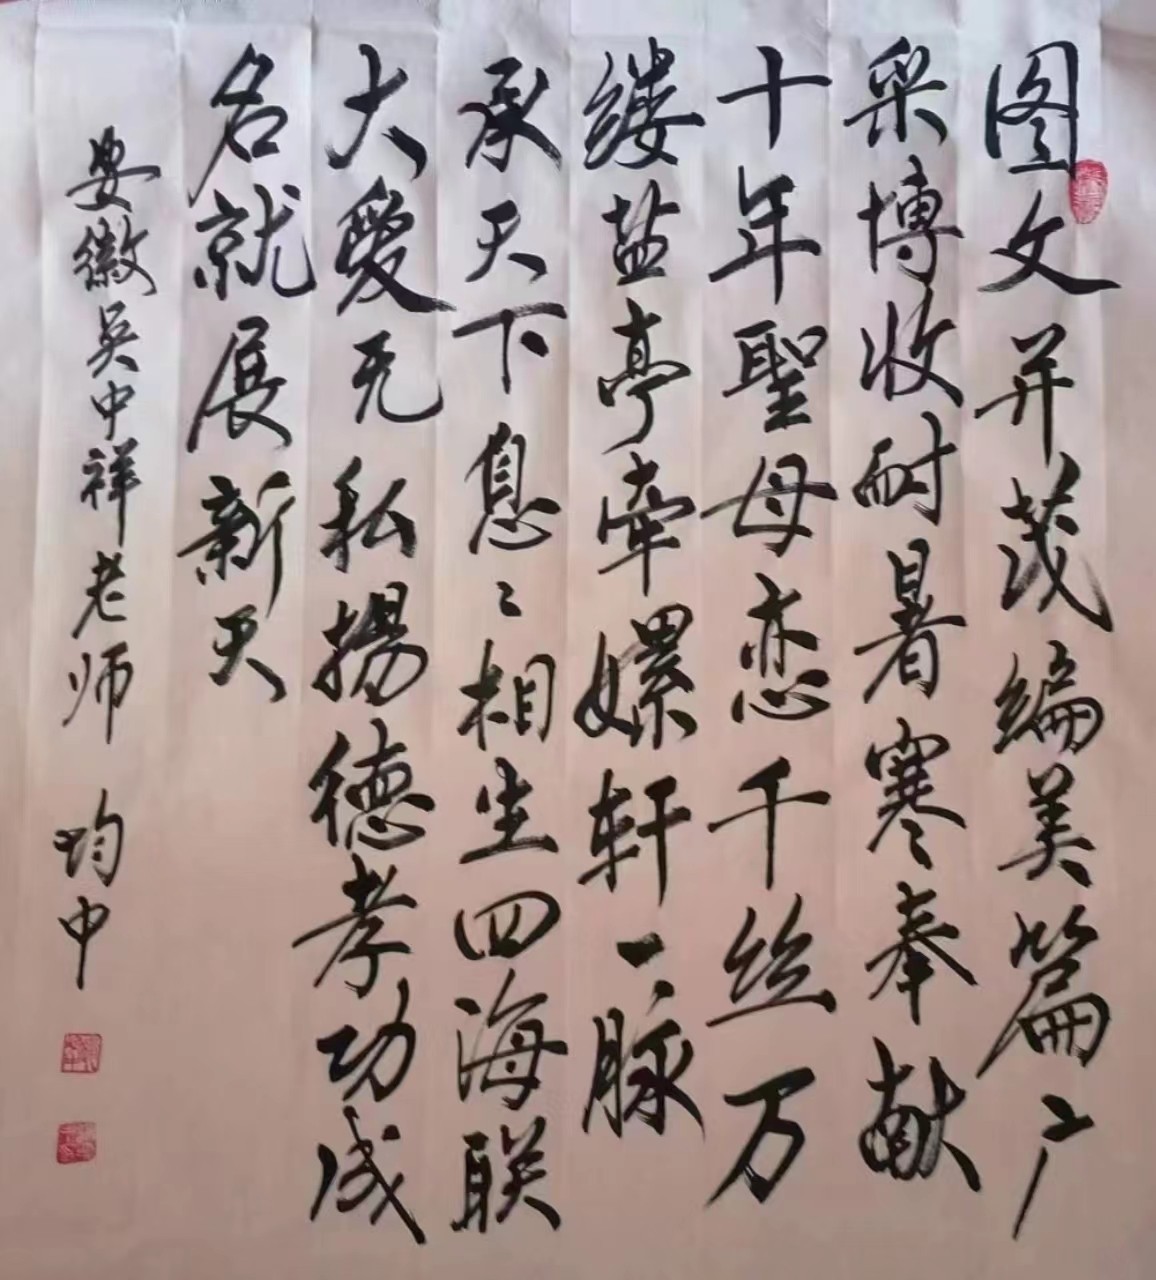 图文并茂编美篇广
采博收耐暑寒奉献
十年聖母恋千丝万
缕盐亭牵嫘轩一脉
承天下息〻相生四海联
大爱无私揚德孝功成
名就展新天
安徽吴中祥老师 均中